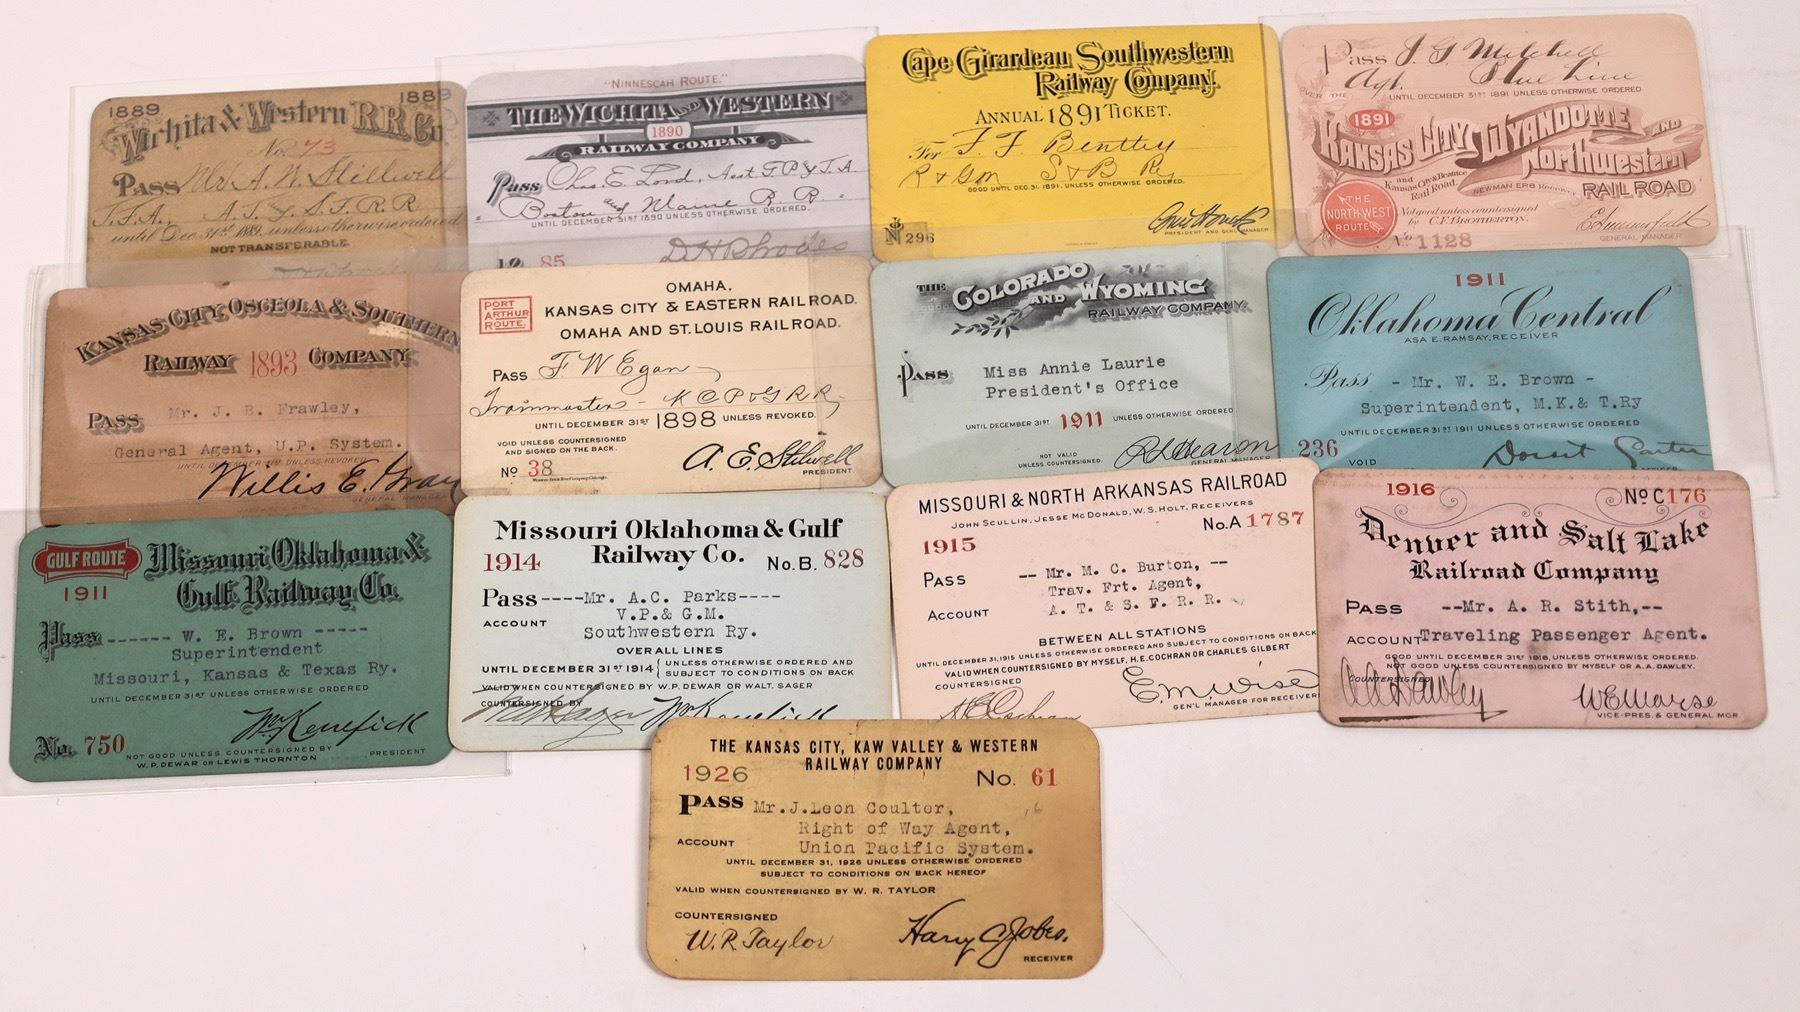 1889 1889
Wichita & Western R.R. Co.
No. 73
Pass Mr. A. W. Stillwell
T.F.A. A. T. & S. F. R. R.
until Dec. 31st 1889, unless otherwise ordered
NOT TRANSFERABLE.
"NINNESCAH ROUTE."
THE WICHITA AND WESTERN
1890
RAILWAY COMPANY
Pass Chas. E. Lord, Asst G.P. & T.A.
" Boston and Maine R. R. "
UNTIL DECEMBER 31ST 1890 UNLESS OTHERWISE ORDERED.
85
D H Rhodes
Cape Girardeau Southwestern
Railway Company.
ANNUAL 1891 TICKET.
For F. F. Bentley
GOOD UNTIL DEC. 31. 1891. UNLESS OTHERWISE ORDERED.
No 296
PRESIDENT AND GENL MANAGER
Pass J. G. Mitchell
Agt. Blue Line
OVER THE UNTIL DECEMBER 31ST 1891 UNLESS OTHERWISE ORDERED
1891
KANSAS CITY WYANDOTTE AND
Northwestern
and Kansas City & Beatrice Rail Road.
NEWMAN ERB Receiver
RAIL ROAD
THE NORTHWEST ROUTE
Not good unless countersigned
by C.F. BROTHERTON.
No 1128
GENERAL MANAGER
KANSAS CITY, OSCEOLA & SOUTHERN
RAILWAY 1893 COMPANY.
PASS Mr. J. B. Frawley,
General Agent, U.P. System.
Willis E. Gray
GENERAL MANAGER
PORT ARTHUR ROUTE.
OMAHA,
KANSAS CITY & EASTERN RAILROAD.
OMAHA AND ST. LOUIS RAILROAD.
PASS F W Egan
Trainmaster - K C P & G R R.
UNTIL DECEMBER 31ST 1898 UNLESS REVOKED.
VOID UNLESS COUNTERSIGNED
AND SIGNED ON THE BACK.
No 38
A. E. Stilwell
PRESIDENT.
THE COLORADO
AND WYOMING
RAILWAY COMPANY.
PASS Miss Annie Laurie
President's Office
UNTIL DECEMBER 31ST 1911 UNLESS OTHERWISE ORDERED.
NOT VALID
UNLESS COUNTERSIGNED.
GENERAL MANAGER
1911
Oklahoma Central
ASA E. RAMSAY, RECEIVER
Pass - Mr. W. E. Brown -
Superintendent, M.K.& T.Ry
UNTIL DECEMBER 31ST 1911 UNLESS OTHERWISE ORDERED
236 VOID
Dorset Carter
GULF ROUTE
1911
Missouri Oklahoma &
Gulf Railway Co.
Pass ------ W. E. Brown -----
Superintendent
Missouri, Kansas & Texas Ry.
UNTIL DECEMBER 31ST UNLESS OTHERWISE ORDERED
Wm Kenefick
No. 750
NOT GOOD UNLESS COUNTERSIGNED BY PRESIDENT
W.P. DEWAR OR LEWIS THORNTON
Missouri Oklahoma & Gulf
1914 Railway Co. No. B. 828
Pass----Mr. A.C. Parks----
ACCOUNT V.P.& G.M.
Southwestern Ry.
OVER ALL LINES
UNTIL DECEMBER 31ST 1914 { UNLESS OTHERWISE ORDERED AND
SUBJECT TO CONDITIONS ON BACK
VALID WHEN COUNTERSIGNED BY W.P. DEWAR OR WALT. SAGER
COUNTERSIGNED BY
Walt Sager Wm Kenefick
MISSOURI & NORTH ARKANSAS RAILROAD
JOHN SCULLIN, JESSE MCDONALD, W.S. HOLT, RECEIVERS
No. A 1787
1915
PASS -- Mr. M. C. Burton, --
Trav. Frt. Agent,
ACCOUNT A. T. & S. F. R. R.
BETWEEN ALL STATIONS
UNTIL DECEMBER 31, 1915 UNLESS OTHERWISE ORDERED AND SUBJECT TO CONDITIONS ON BACK
VALID WHEN COUNTERSIGNED BY MYSELF, H.E. COCHRAN OR CHARLES GILBERT
COUNTERSIGNED
H E Cochran
E M Wise
GEN'L MANAGER FOR RECEIVERS
1916 No C176
Denver and Salt Lake
Railroad Company
PASS --Mr. A. R. Stith,--
ACCOUNT Traveling Passenger Agent.
GOOD UNTIL DECEMBER 31ST 1916, UNLESS OTHERWISE ORDERED.
NOT GOOD UNLESS COUNTERSIGNED BY MYSELF OR A.A. DAWLEY.
COUNTERSIGNED
A A Dawley W E Morse
VICE-PRES. & GENERAL MGR.
THE KANSAS CITY, KAW VALLEY & WESTERN
RAILWAY COMPANY
1926 No. 61
PASS Mr. J. Leon Coulter,
Right of Way Agent,
ACCOUNT Union Pacific System.
UNTIL DECEMBER 31, 1926 UNLESS OTHERWISE ORDERED
SUBJECT TO CONDITIONS ON BACK HEREOF
VALID WHEN COUNTERSIGNED BY W. R. TAYLOR
COUNTERSIGNED
W. R. Taylor Harry C Jobes.
RECEIVER